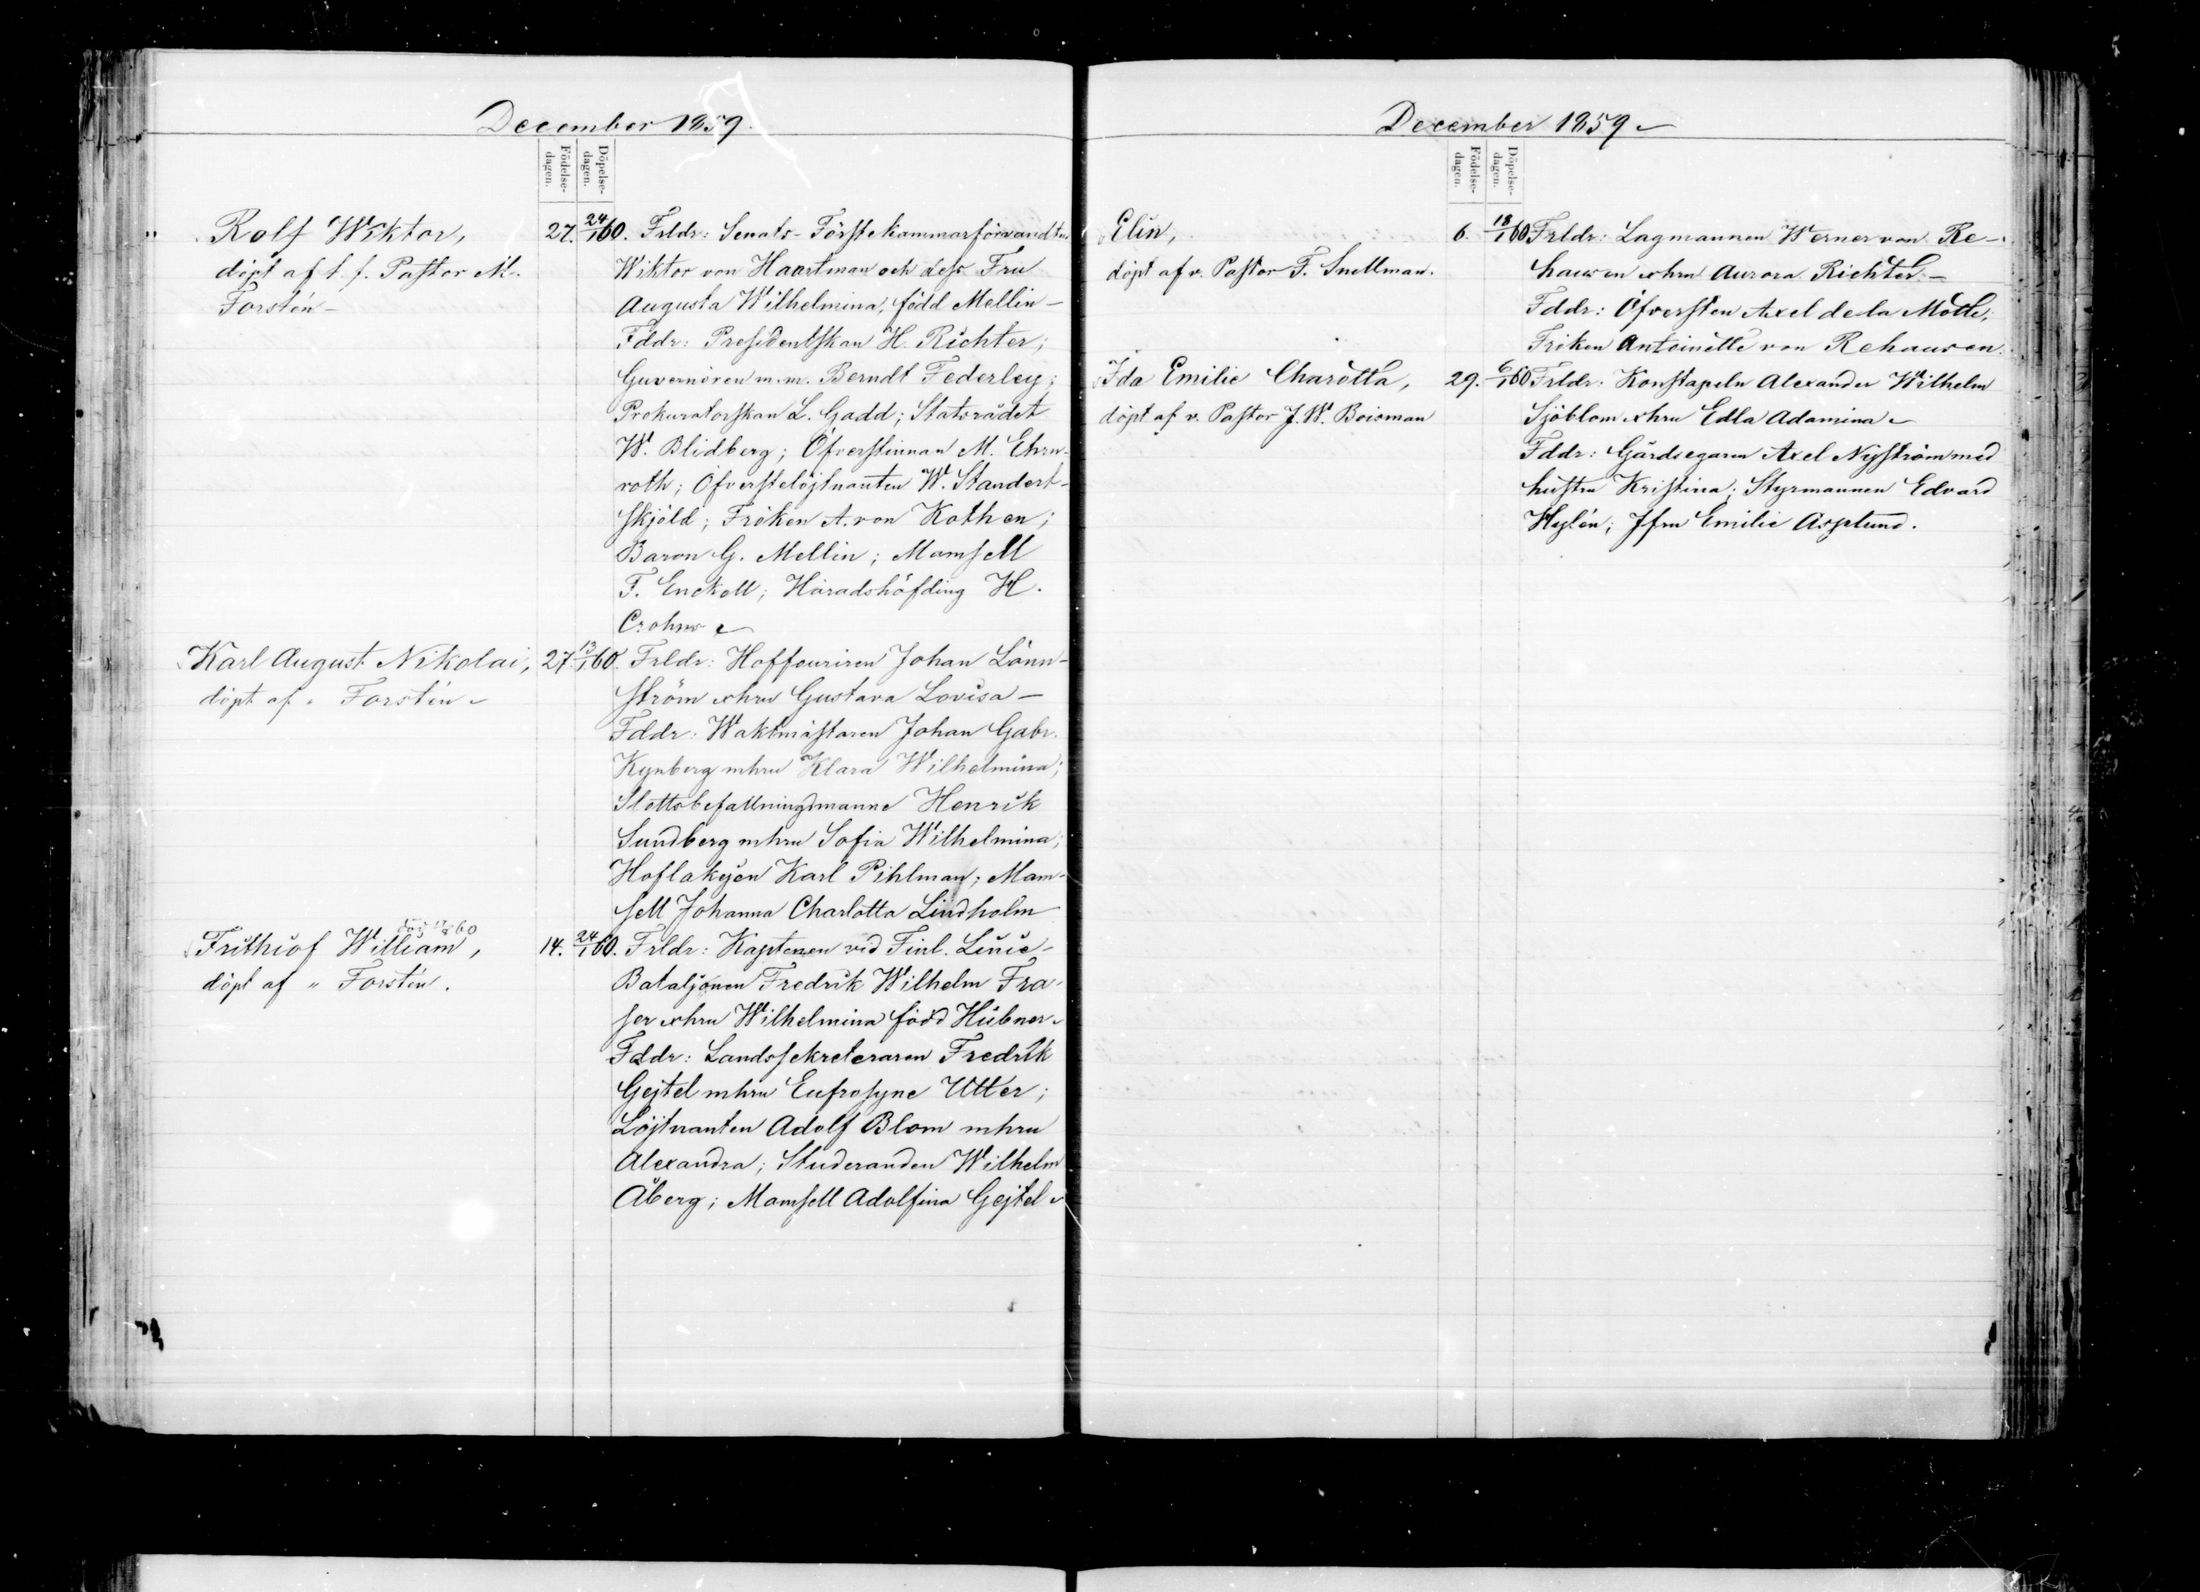 December 1859.
Födelse-
dagen.
Döpelse-
dagen.
Rolf Wiktor,
döpt af t. f. Pastor M.
Forstén –
27.
24/1 60.
Frldr: Senats-Förste kammarförvandten
Wiktor von Haartman och dess Fru
Augusta Wilhelmina, född Mellin –
Fddr: Presidentskan H. Richter;
Guvernören m.m. Berndt Federley;
Prokuratorskan L. Gadd; Statsrådet
W. Blidberg; Öfverstinnan M. Ehrn-
roth; Öfverstelöjtnanten W. Standert-
skjöld; Fröken A. von Kothen;
Baron G. Mellin; Mamsell
F. Enckell; Häradshöfding H.
Crohns
Karl August Nikolai,
döpt af " Forstén
27.
13/1 60.
Frldr: Hoffouriren Johan Lönn-
ström o hru Gustava Lovisa –
Fddr: Waktmästaren Johan Gabr.
Kynberg m hru Klara Wilhelmina;
Slottsbefallningsmanne Henrik
Sundberg m hru Sofia Wilhelmina;
Hoflakejen Karl Pihlman; Mam-
sell Johanna Charlotta Lindholm
Frithiof William,
döpt af " Forstén.
14.
24/1 60.
Frldr: Kaptenen vid Finl. Linie-
Bataljonen Fredrik Wilhelm Fra-
ser o hru Wilhelmina född Hübner
Fddr: Landssekreteraren Fredrik
Gejtel m hru Eufrosyne Utter;
Löjtnanten Adolf Blom m hru
Alexandra; Studeranden Wilhelm
Åberg; Mamsell Adolfina Gejtel
December 1859
Födelse-
dagen.
Döpelse-
dagen.
Elin,
döpt af v. Pastor F. Snellman.
6.
18/1 60
Frldr: Lagmannen Werner von Re-
hausen o hru Aurora Richter –
Fddr: Öfversten Axel de la Motte;
Fröken Antoinette von Rehausen.
Ida Emilie Charotta,
döpt af v. Pastor J. W. Boisman
29.
6/1 60
Frldr: Konstapeln Alexander Wilhelm
Sjöblom o hru Edla Adamina
Fddr: Gårdsegaren Axel Nyström med
hustru Kristina; Styrmannen Edvard
Hylén; Jfru Emilie Asplund.